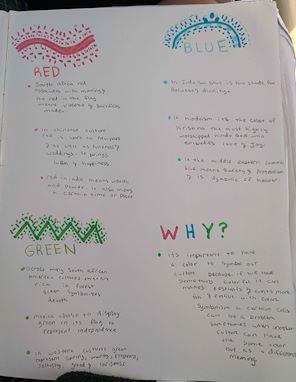 RED
South Africa red
associates with mourning.
the red in the flag
means violence & sacrifices
made.
in chinese culture
red is worn in new years
& as well as funerals
weddings. it brings
luck & happiness
red in india means wealth
and power. it also means
a certain time or place
BLUE
In Judaism blue is the shade for
holiness & divinity
in hinduism its the color of
Krishna the most highly
worshipped hindu god who
embodies love & joy
in the middle eastern countries
blue means safety & protection
& is symbolic of heaven.
GREEN
across many south african
american cultures
rich in forest
green symbolizes
death
mexico chose to display
green in its flag to
represent independence
in western cultures green
represent spring, money,
jealousy, greed
WHY?
its important to have
a color to symbolize our
culture because if we had
something colorful it can
makes festivals & events more
fun & festive with color.
Symbolism in certain colors
can be a problem
sometimes when another
culture can have
the same color
but as a different
meaning.